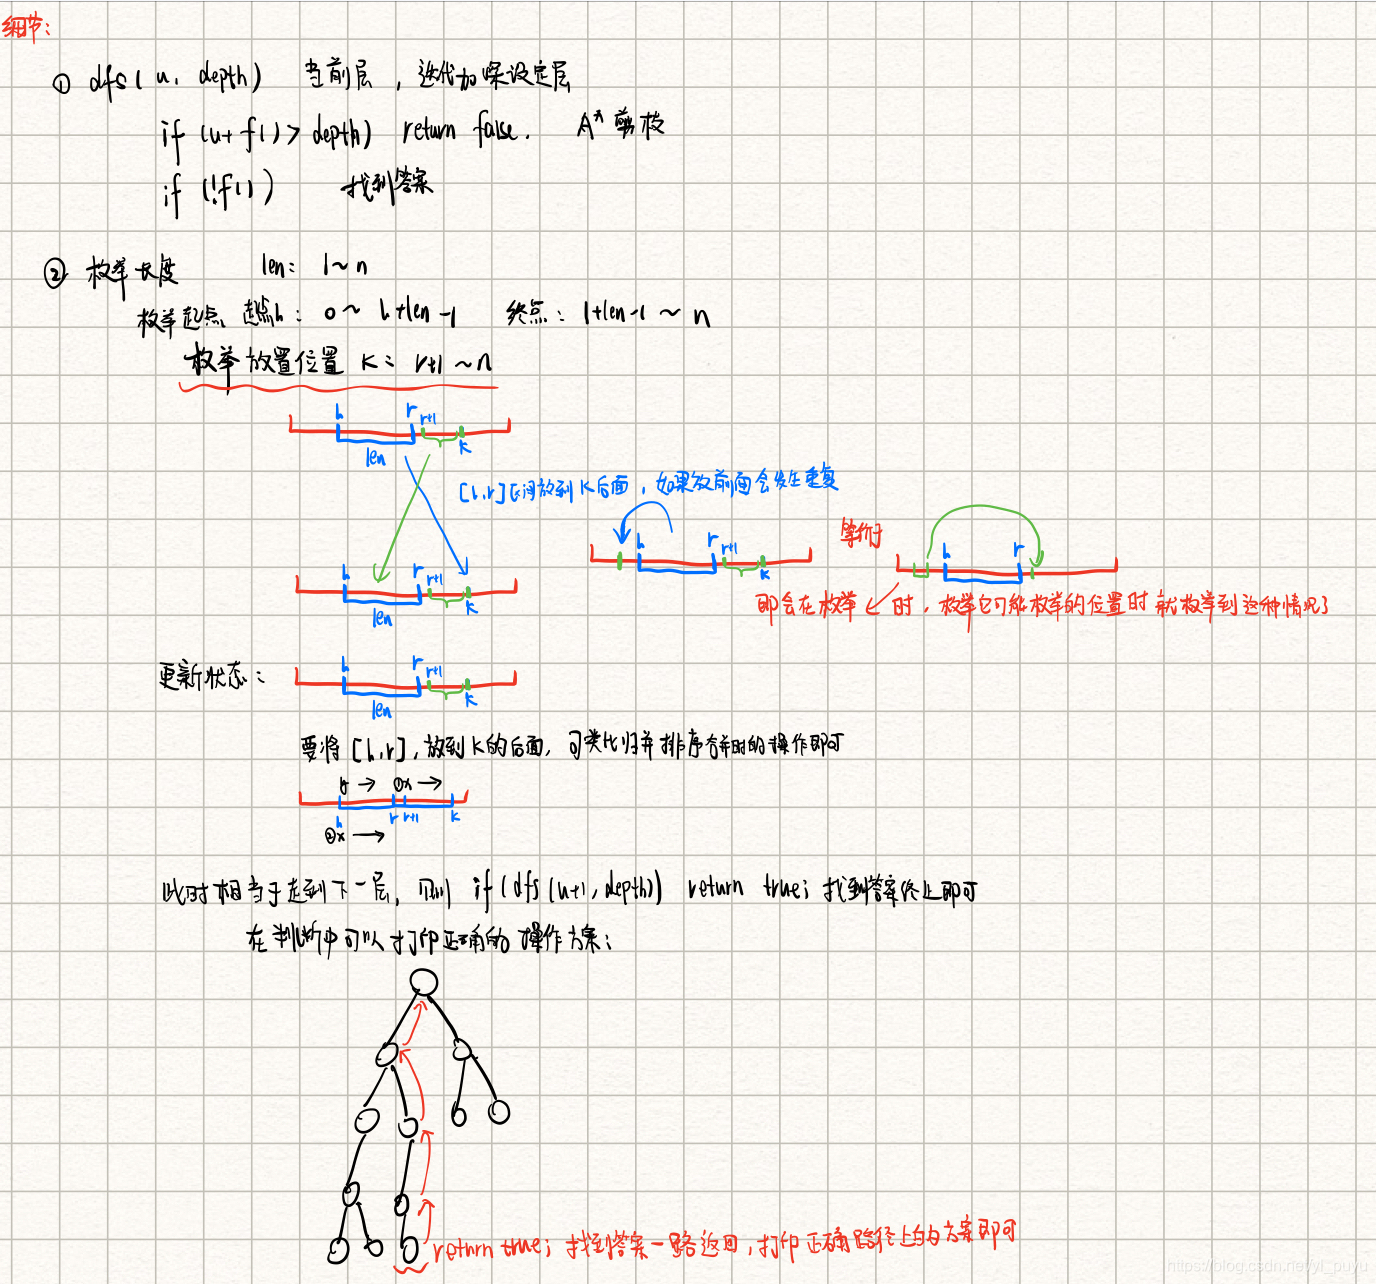 细节:
① dfs(u, depth) 当前层，迭代加深设定层
if (u+f()>depth) return false. A* 剪枝
if (!f()) 找到答案
② 枚举长度 len: 1~n
枚举起点 起点h: 0~h+len-1 终点: 1+len-1~n
枚举放置位置 k: r+1~n
h r r+1
len k
[h,r]区间放到k后面，如果放前面会发生重复
h r r+1 k
等价于
h r
h r r+1
len k
即会在枚举 时，枚举它可能枚举的位置时就枚举到这种情况了
更新状态:
h r r+1
len k
要将[h,r],放到k的后面，可类比归并排序合并时的操作即可
→ ①x →
h r r+1 k
②x →
此时相当于走到下一层，则 if(dfs(u+1,depth)) return true; 找到答案终止即可
在判断中可以打印正确的操作方案;
return true; 找到答案一路返回，打印正确路径上的方案即可
https://blog.csdn.net/yl_puyu